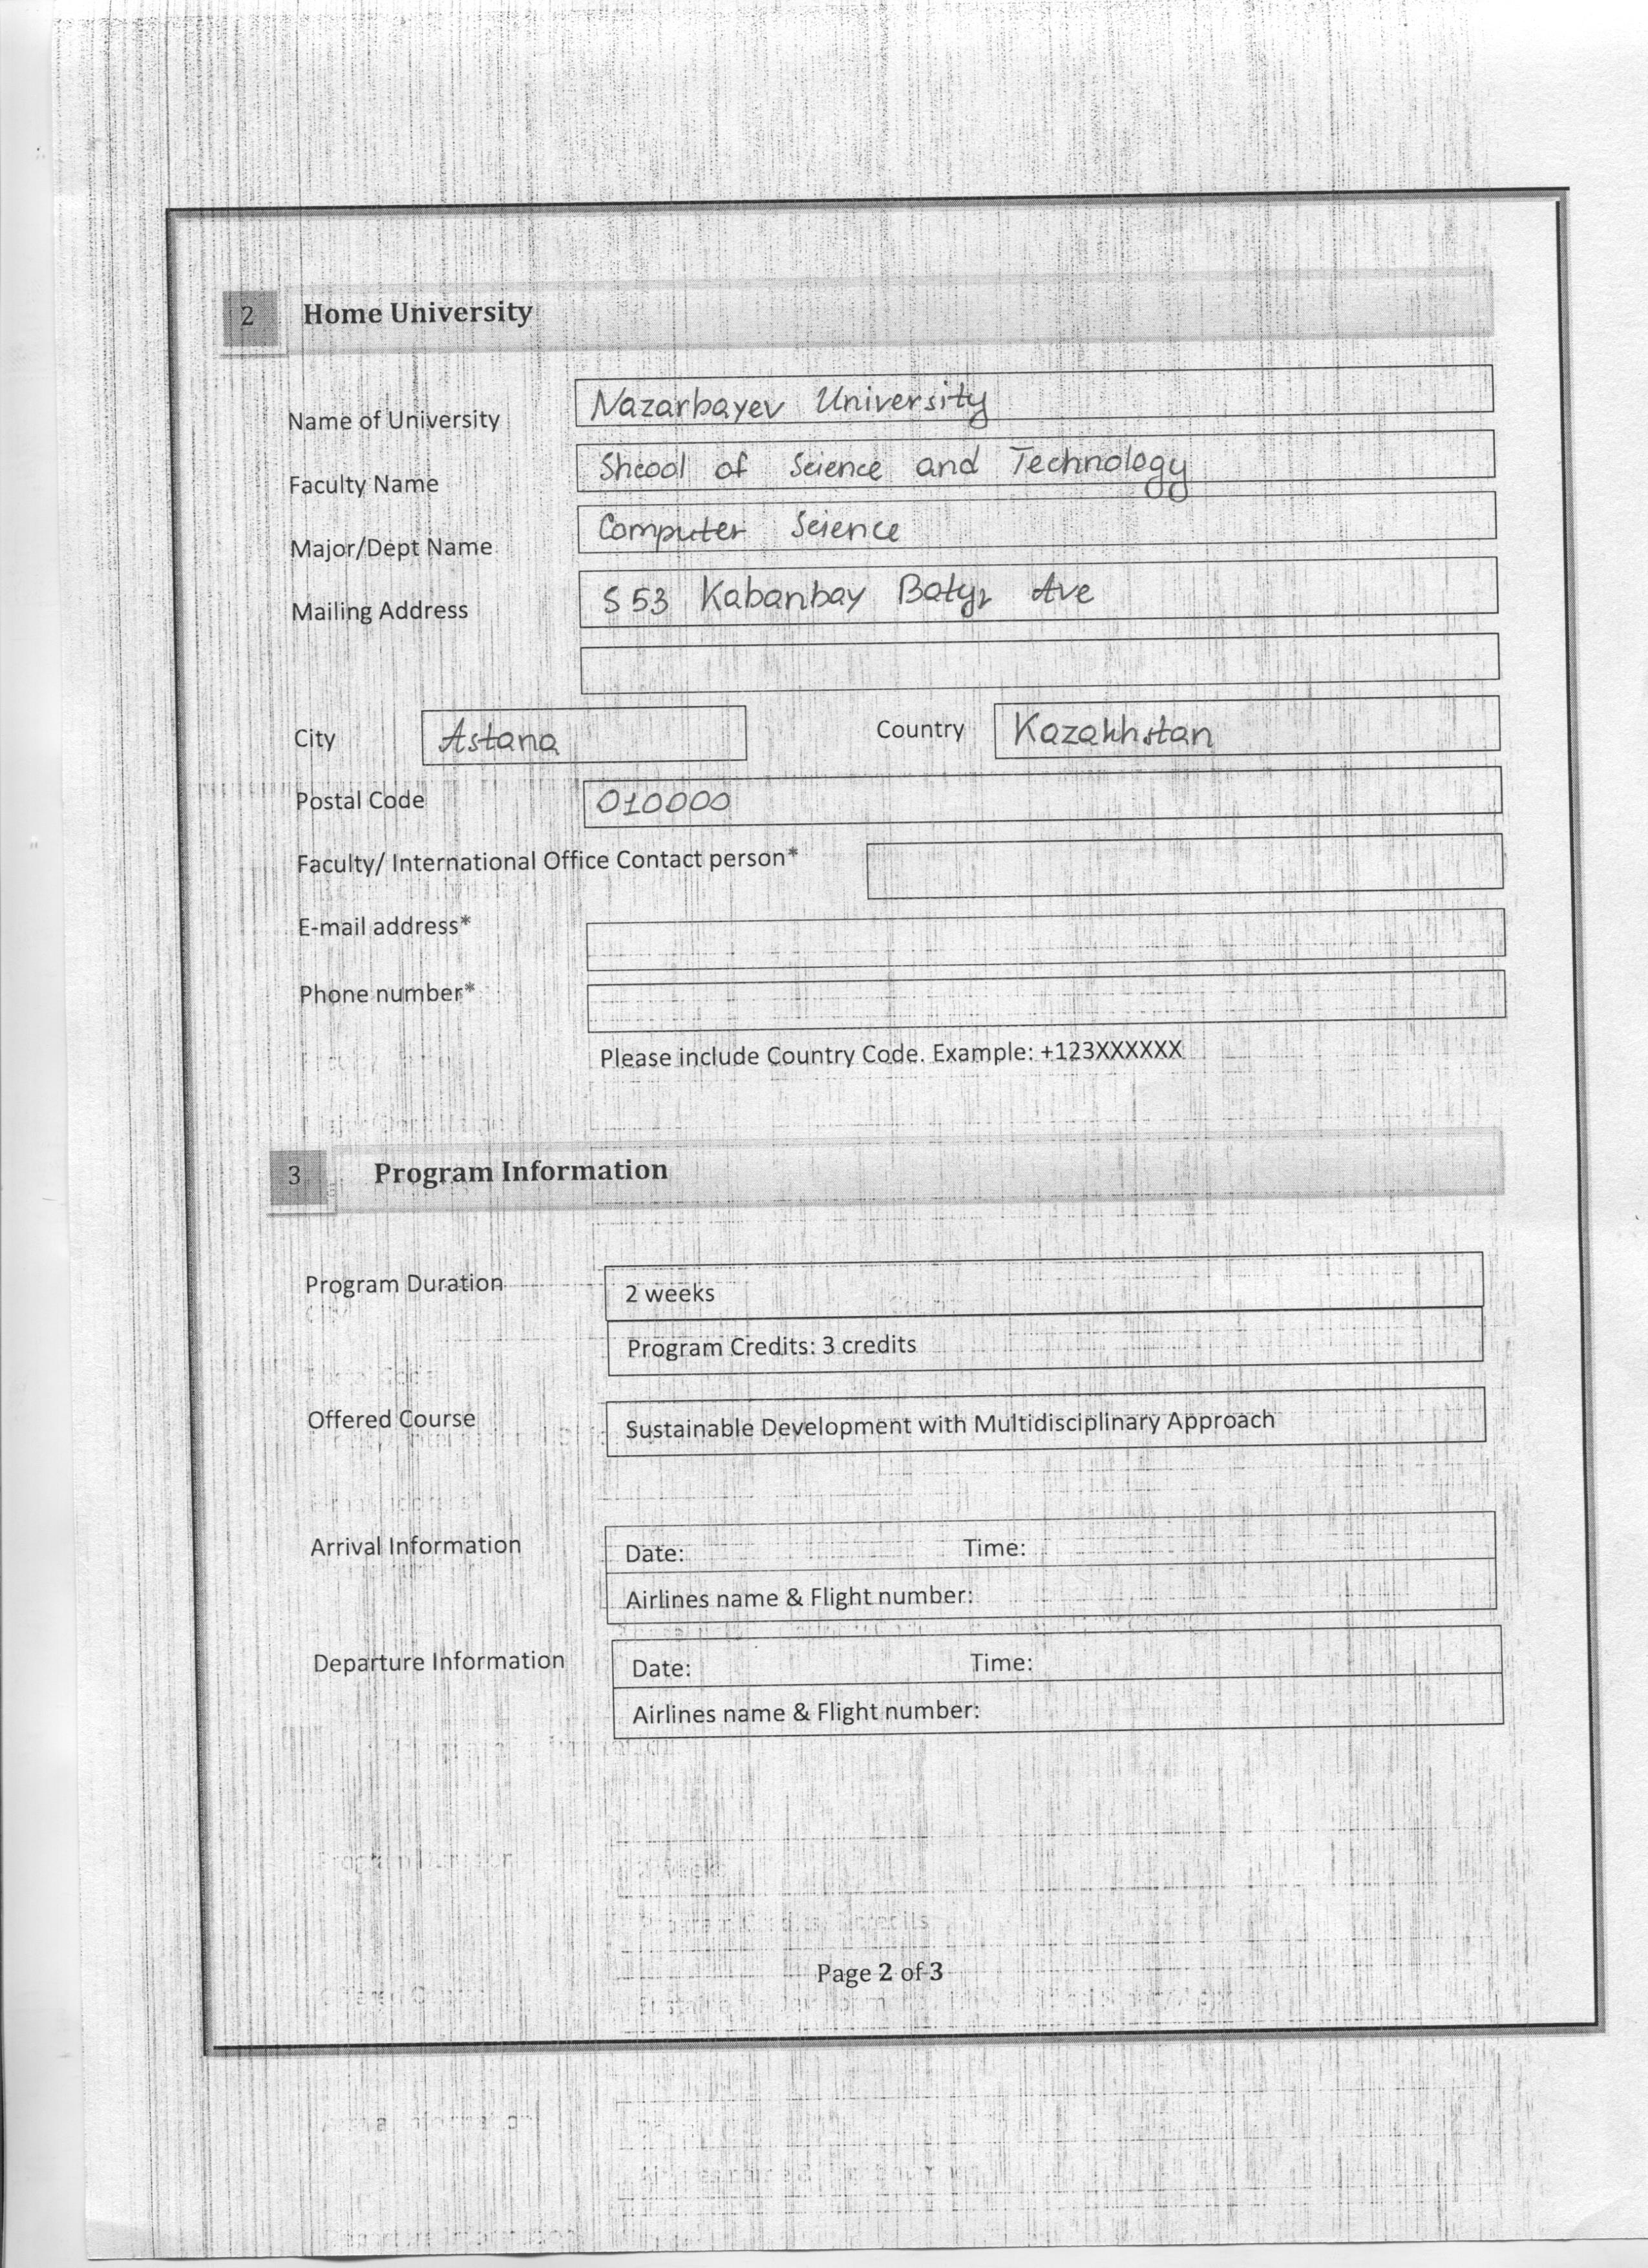 2 Home University
Name of University Nazarbayev University
Faculty Name Shcool of Science and Technology
Major/Dept Name Computer Science
Mailing Address S 53 Kabanbay Batyr Ave
City Astana Country Kazakhstan
Postal Code 010000
Faculty/ International Office Contact person*
E-mail address*
Phone number*
Please include Country Code. Example: +123XXXXXX
3 Program Information
Program Duration 2 weeks
Program Credits: 3 credits
Offered Course Sustainable Development with Multidisciplinary Approach
Arrival Information Date: Time:
Airlines name & Flight number:
Departure Information Date: Time:
Airlines name & Flight number:
Page 2 of 3